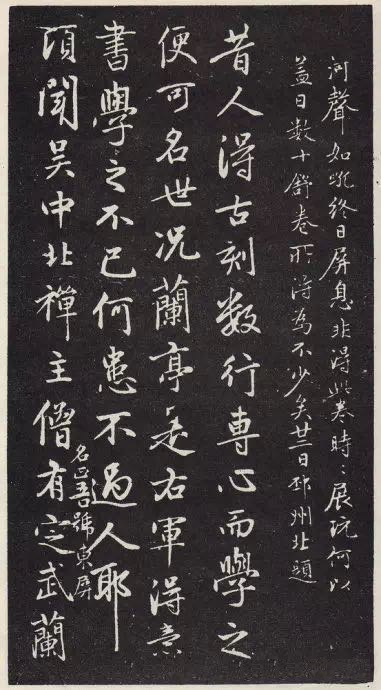 河聲如吼終日屏息非得此卷時〻展玩何以
蓋日數十舒卷所得為不少矣廿二日邳州北題
昔人得古刻數行專心而學之
便可名世况蘭亭是右軍得意
書學之不已何患不過人耶
頃聞吴中北禪主僧有定武蘭
名正吾號東屏